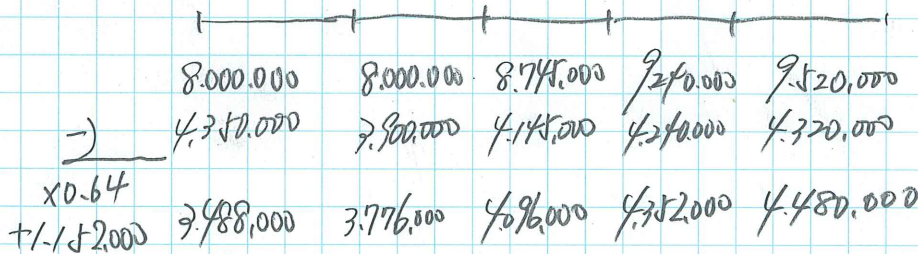 8.000.000 8.000.000 8.745.000 9.240.000 9.520,000
-) 4.350.000 3.900.000 4.145.000 4.240.000 4.320,000
×0.64
+1.152.000 3.488,000 3.776,000 4.096,000 4.352,000 4.480.000